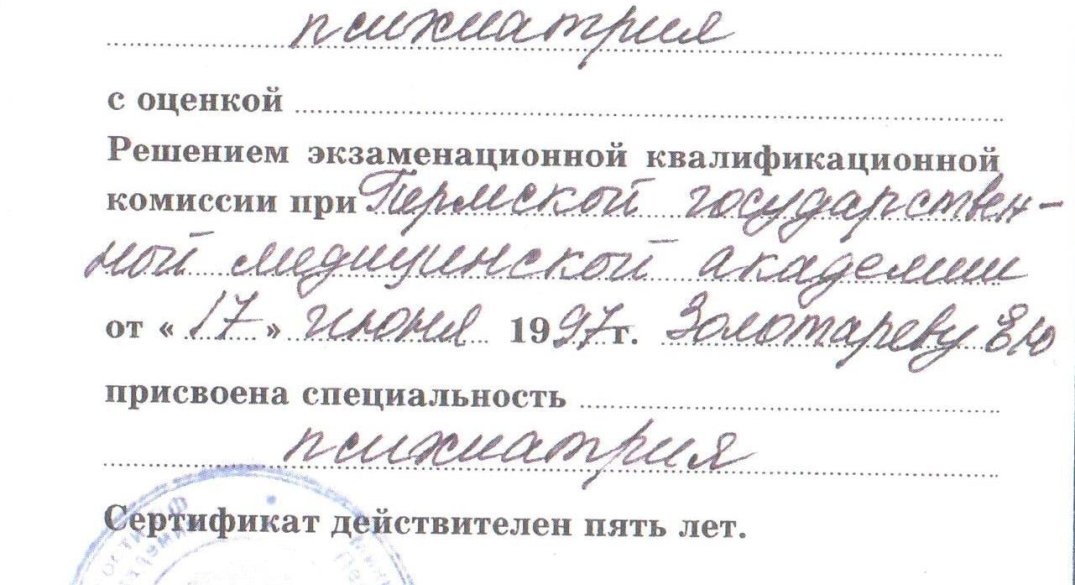 психиатрия
с оценкой
Решением экзаменационной квалификационной
комиссии при Пермской государствен-
ной медицинской академии
от « 17 » июня 1997 г. Золотареву ЕЮ
присвоена специальность
психиатрия
Сертификат действителен пять лет.